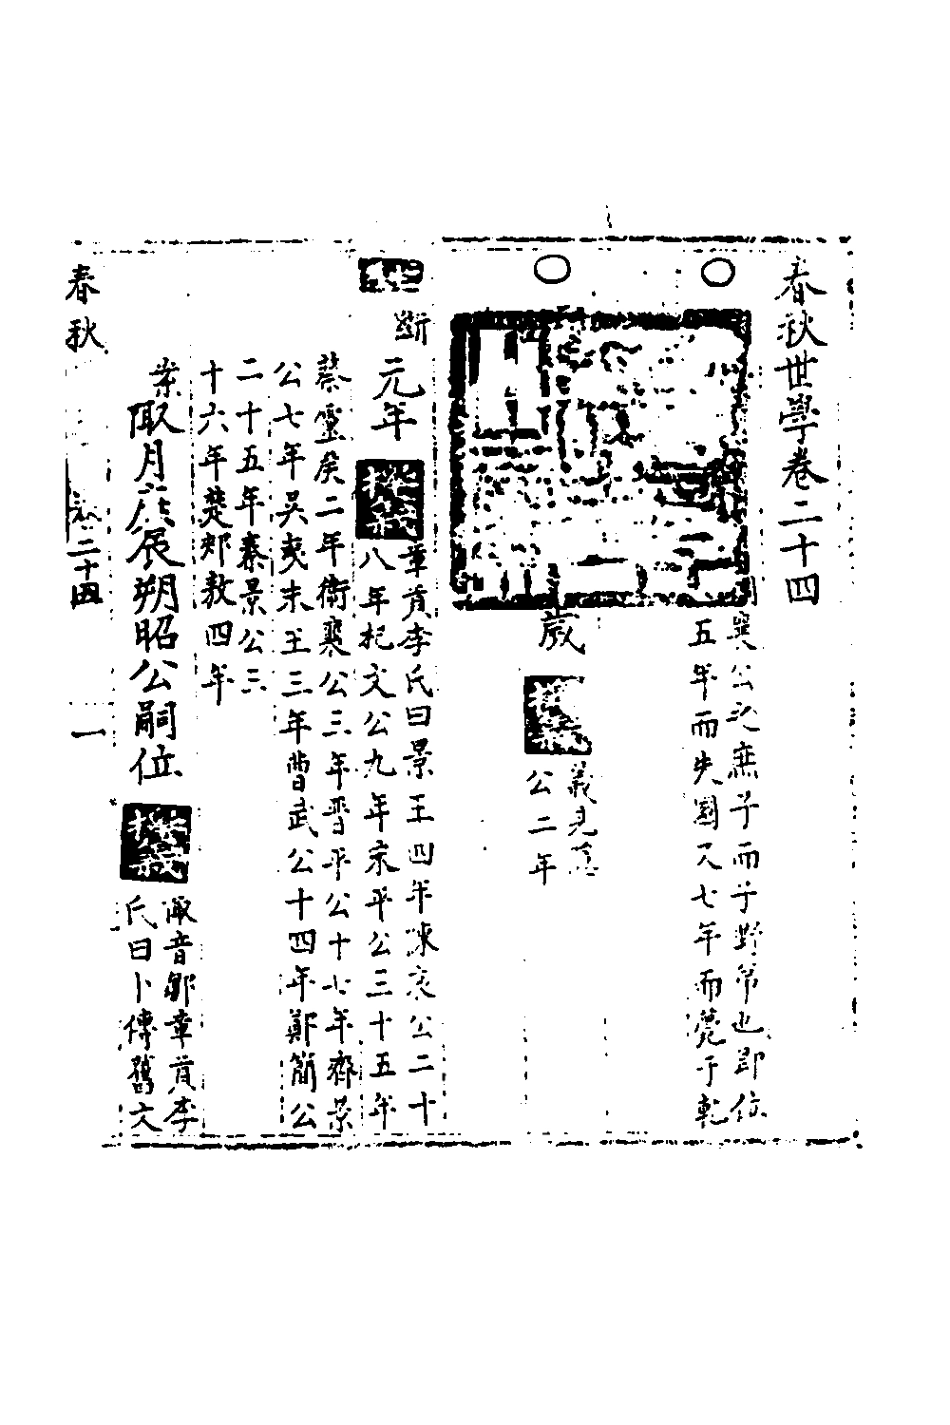 春秋世學卷二十四
襄公之庶子而子野弟也即位
五年而失國又七年而薨于乾
歲
義見隱
公二年
斷
元年
章貢李氏曰景王四年陳哀公二十
八年杞文公九年宋平公三十五年
蔡靈侯二年衛襄公三年晉平公十七年齊景
公七年吳夷末王三年曹武公十四年鄭簡公
二十五年秦景公三
十六年楚郟敖四年
案
陬月庚辰朔昭公嗣位
陬音鄒章貢李
氏曰卜傳舊文
春秋
卷二十四
一